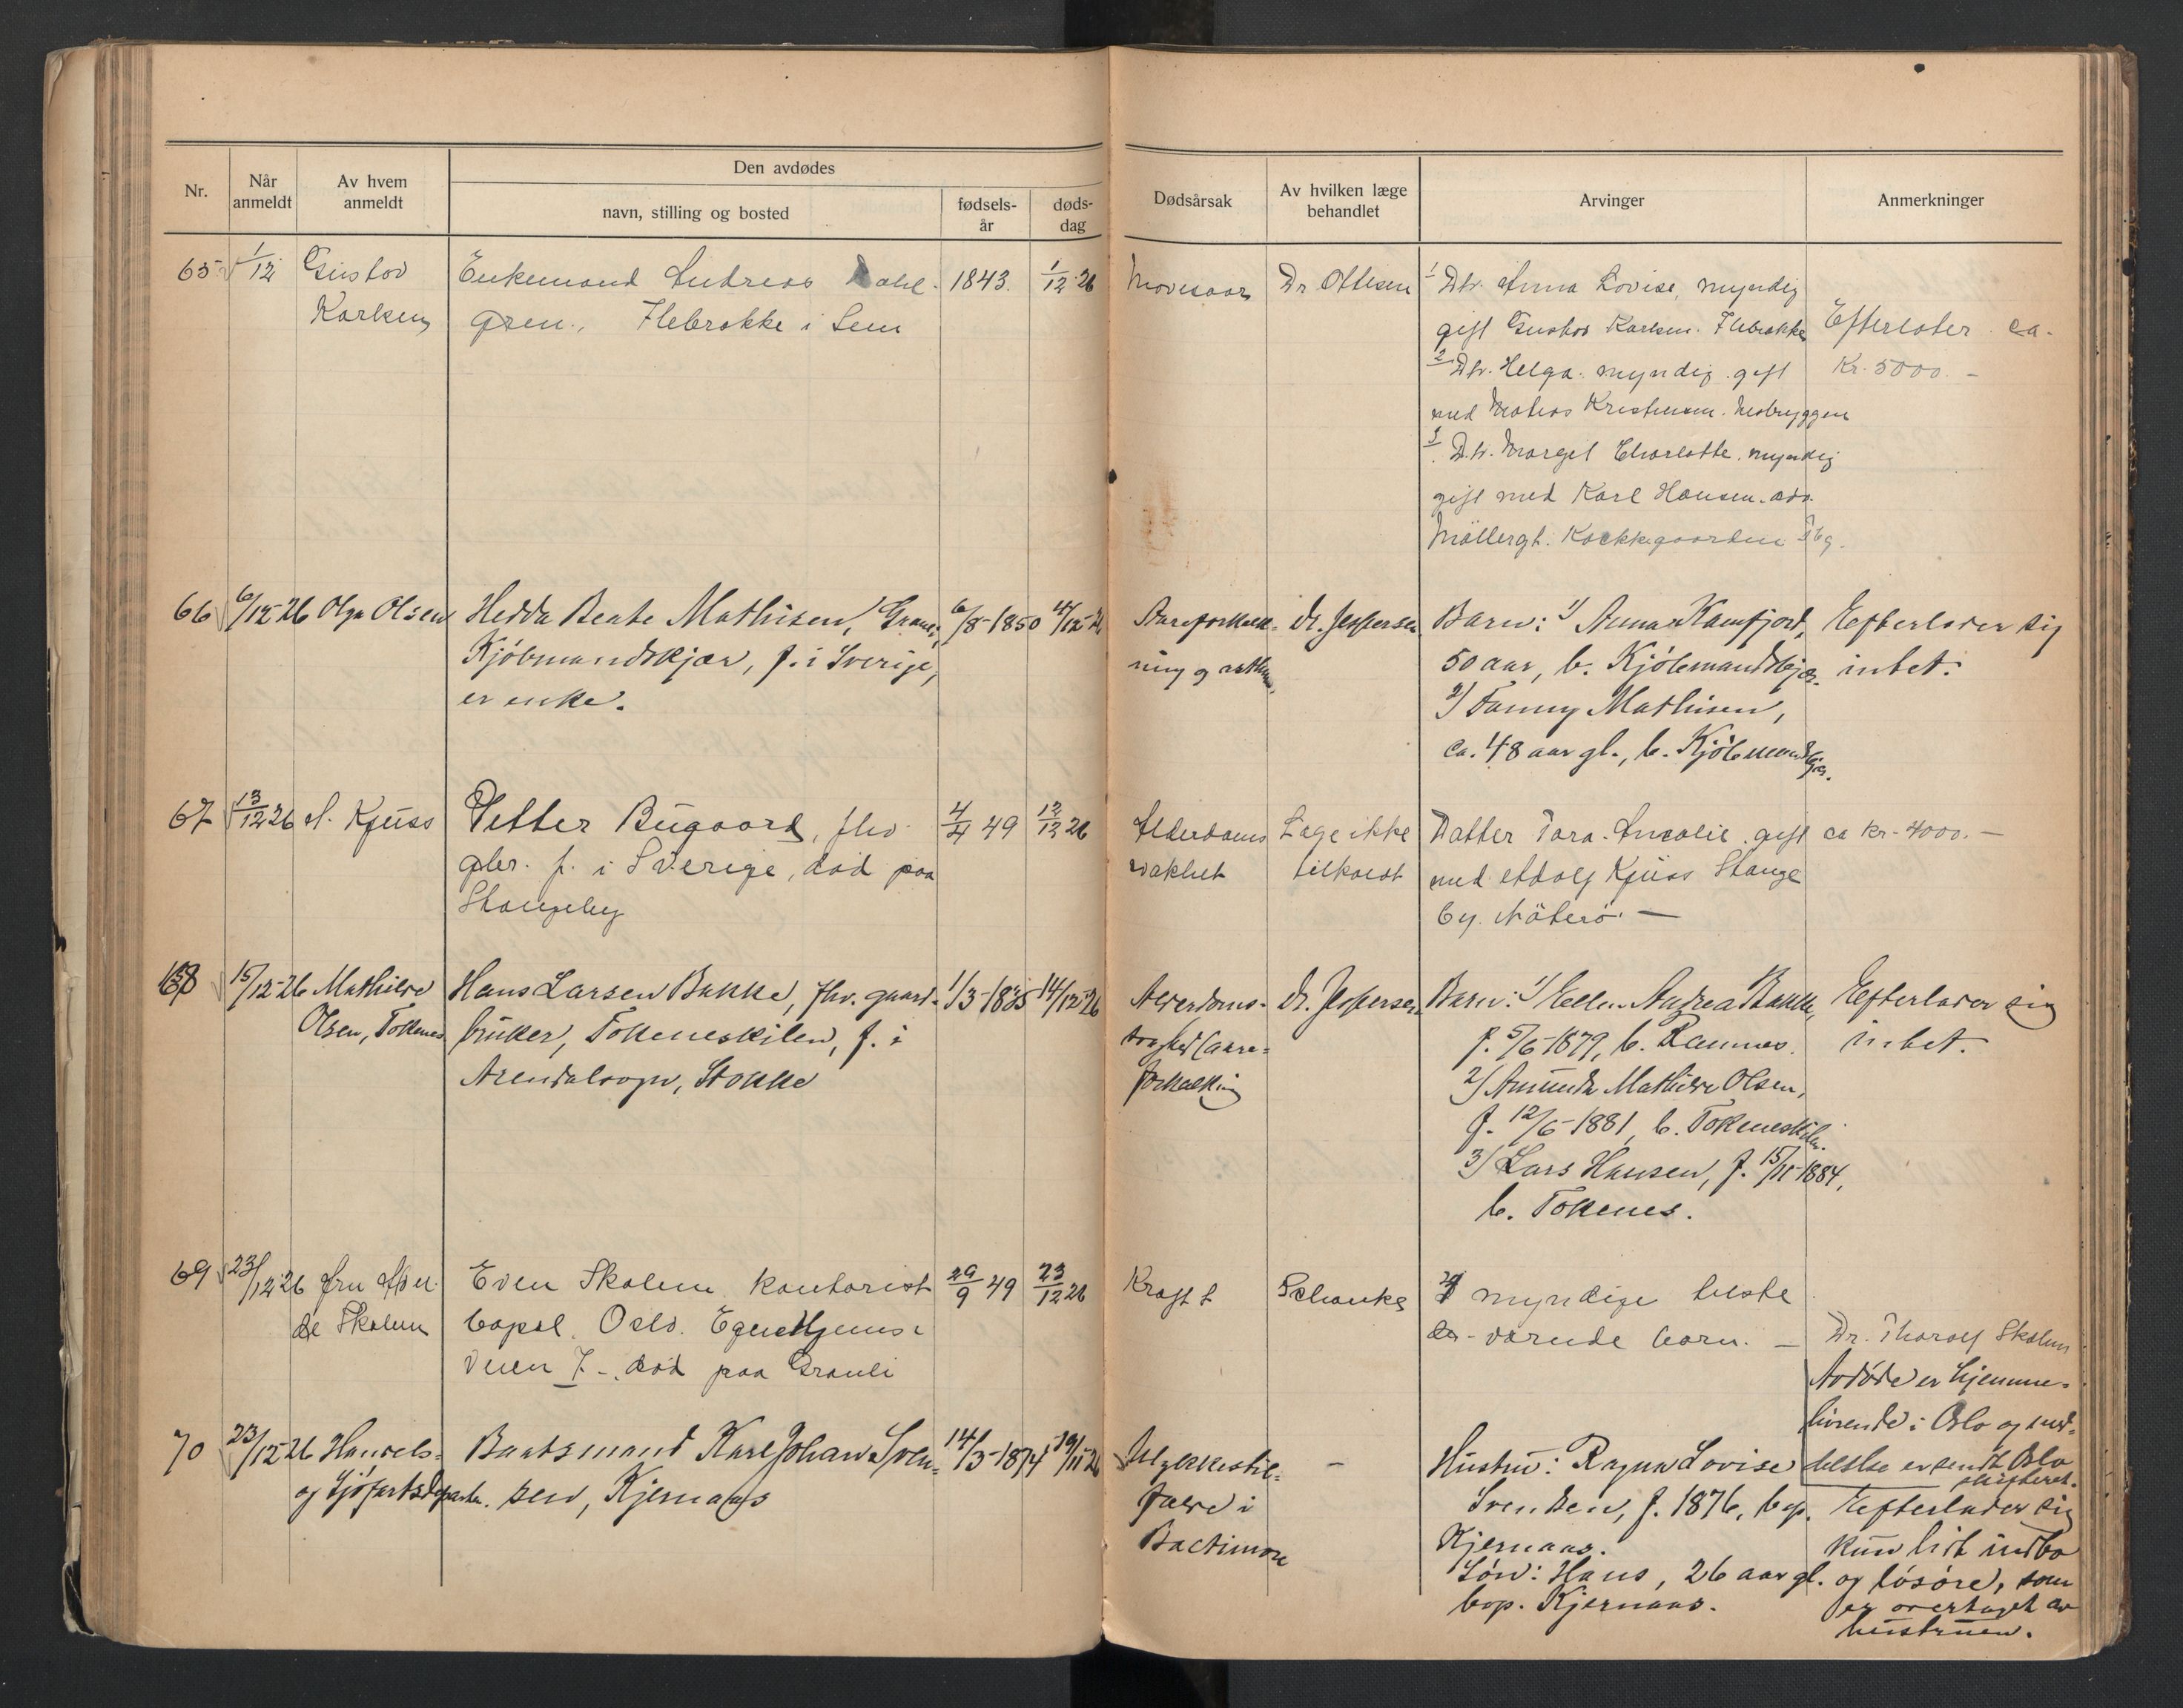 Nr.
Når anmeldt
Av hvem anmeldt
Den avdødes
navn, stilling og bosted
fødsels-år
døds-dag
Dødsårsak
Av hvilken læge behandlet
Arvinger
Anmerkninger
65 1/12 Gustav Karlsen
Enkemand Andreas Dahl-
gren., Flebrakke i Sem
1843. 1/12-26
Mavesaar
Dr Ottesen
1 Dtr. Anna Lovise, myndig
gift Gustav Karlsen. Flebrakke
2 Dtr. Helga. myndig. gift
med Mathias Kristensen. Nesbryggen
3 Dtr. Margit Charlotte. myndig
gift med Karl Hansen. adr.
Møllergt. Kockegaarden Tbg.
Efterlater ca.
Kr. 5000. -
66 6/12-26 Olga Olsen
Hedda Beate Mathisen,
Kjøbmandskjær, f. i Sverige,
er enke.
6/8-1850 4/12-26
Aareforkalk-
ning og asthma.
dr. Jespersen
Barn: 1/ Anna Kamfjord,
50 aar, b. Kjøbmandskjær.
2/ Fanny Mathisen,
ca. 48 aar gl., b. Kjøbmandskjær.
Efterlader sig
intet.
67 13/12 26 A. Kjuss
Petter Bugaard, fhv.
gbr. f. i Sverige, død paa
Skougeby
4/4 49 12/12 26
Alderdoms
svakhet
Læge ikke
tilkaldt
Datter Tora. Amalie. gift
med Adolf Kjuss Stange
by. Nøterø. —
ca kr. 4000. —
68 15/12-26 Mathilde
Olsen, Tokenes
Hans Larsen Bakke, fhv. gaard-
bruker, Tokeneskilen, f. i
Arendalsogn, Stokke
1/3-1835 14/12-26
Alderdoms-
svaghed (aare-
forkalkning
dr. Jespersen
Barn: 1/ Ellen Andrea Bakke,
f. 5/6-1879, b. Ramnes.
2/ Amunda Mathilde Olsen,
f. 12/6-1881, b. Tokeneskilen.
3/ Lars Hansen, f. 15/11-1884,
b. Tokenes.
Efterlader sig
intet.
69 23/12 26 Fru
Skolem
Even Skolem kontorist
bopæl. Oslo. Egnehjems-
veien 7 -. død paa Granli
29/9 49 23/12 26
Kræft
Schanke
4 myndige tilste
de- værende barn. —
Dr. Thoralf Skolem
Avdøde er hjemme-
hørende i Oslo og med-
delelse er sendt Oslo
skifteret.
70 23/12 26 Handels-
og Sjøfartsdepartm.
Baatsmand Karl Johan Sven-
sen, Kjernaas
14/3-1874 19/11-26
Ulykkestil-
fælde i
Baltimore
-
Hustru: Ragna Lovise
Svendsen, f. 1876, bop.
Kjernaas.
Søn: Hans, 26 aar gl.
bop. Kjernaas.
Efterlader sig
kun lidt indbo
og løsøre, som
er overtaget av
hustruen.